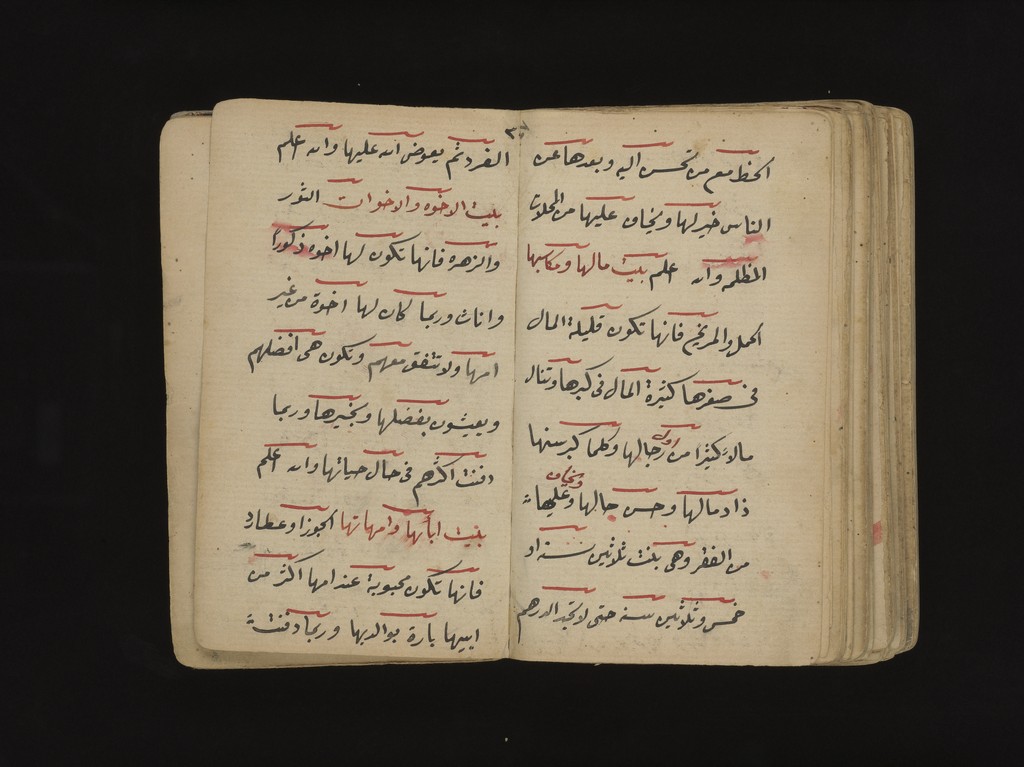 الحظ مع من تحسن اليه وبعدها عن
الناس خير لها ويخاف عليها من المحلات
المظلمه والله اعلم بيت مالها ومكاسبها
الحمل والمريخ فانها تكون قليلة المال
فى صغرها كثيرة المال فى كبرها وتنال
مالاً كثيرا من اول رجالها وكلما كبر سنها
زاد مالها وحسن حالها ويخاف عليها
من الفقر وهى بنت ثلاثين سنه او
خمس وثلاثين سنه حتى لا تجد الدرهم
٣٦
الفرد ثم يعوض الله عليها والله اعلم
بيت الاخوه والاخوات الثور
والزهره فانها تكون لها اخوه ذكورا
واناث وربما كان لها اخوة من غير
امها ولا تتفق معهم وتكون هى افضلهم
ويعيشون بفضلها وبخيرها وربما
دفنت اكثرهم فى حال حياتها والله اعلم
بيت ابائها وامهاتها الجوزا وعطارد
فانها تكون محبوبة عند امها اكثر من
ابيها بارة بوالديها وربما دفنت